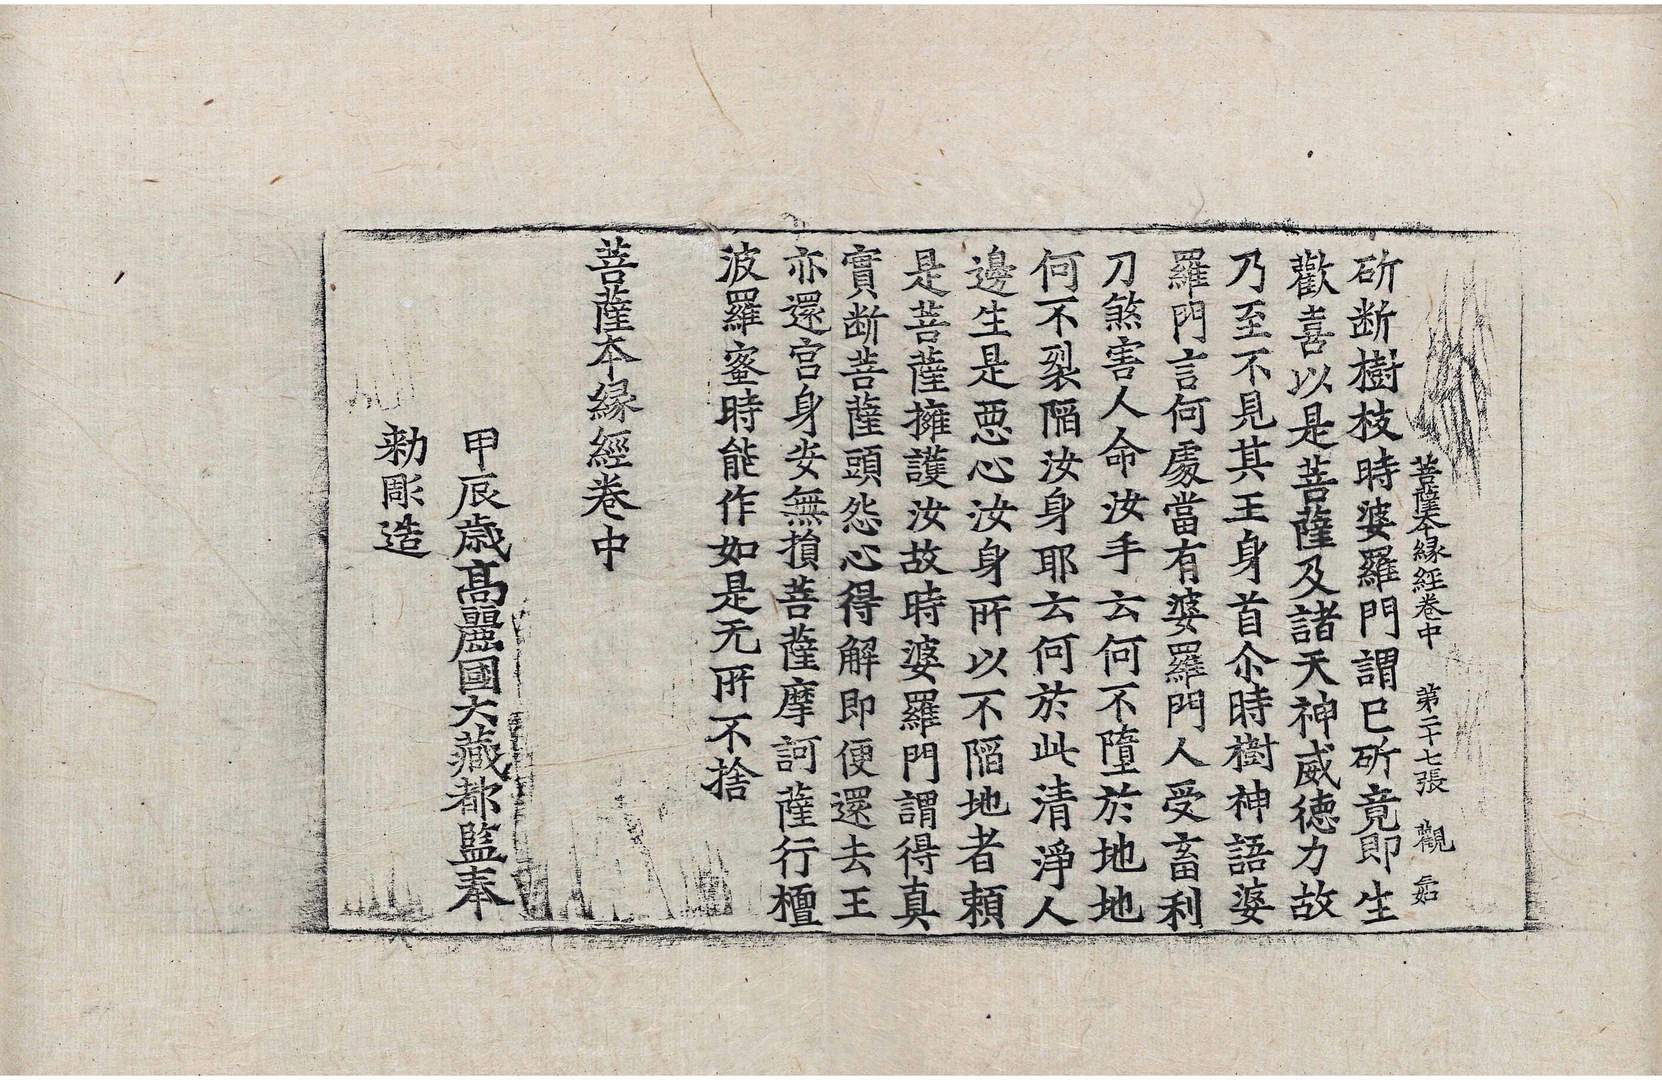 菩薩本緣經卷中 第二十七張 觀
斫断樹枝時婆羅門謂已斫竟即生
歡喜以是菩薩及諸天神威德力故
乃至不見其王身首尒時樹神語婆
羅門言何處當有婆羅門人受畜利
刀煞害人命汝手云何不墮於地地
何不裂陷汝身耶云何於此清淨人
邊生是惡心汝身所以不陷地者賴
是菩薩擁護汝故時婆羅門謂得真
實断菩薩頭怨心得解即便還去王
亦還宫身安無損菩薩摩訶薩行檀
波羅蜜時能作如是无所不捨
菩薩本緣經卷中
甲辰歳高麗國大藏都監奉
勑彫造